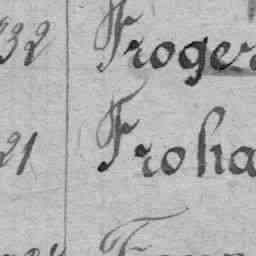 32 Froger
21 Froha